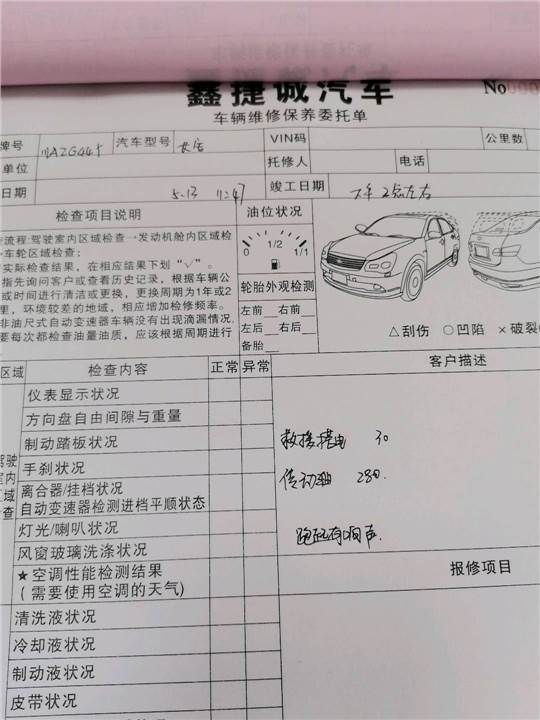 鑫捷诚汽车
No
车辆维修保养委托单
牌号 汽车型号 VIN码 公里数
单位 托修人 电话
日期 5.13 11:47 竣工日期 下午2点左右
检查项目说明 油位状况
流程:驾驶室内区域检查→发动机舱内区域检
车轮区域检查;
实际检查结果,在相应结果下划“√”。
指先询问客户或查看历史记录,根据车辆公
或时间进行清洁或更换,更换周期为1年或2
里,环境较差的地域,相应增加检修频率。
非油尺式自动变速器车辆没有出现滴漏情况,
要每次都检查油量油质,应该根据周期进行
0 1/2 1/1
轮胎外观检测
左前 右前
左后 右后
备胎
△刮伤 ○凹陷 ×破裂
区域 检查内容 正常 异常 客户描述
驾驶室内区域检查
仪表显示状况
方向盘自由间隙与重量
制动踏板状况
手刹状况
离合器/挂档状况
自动变速器检测进档平顺状态
灯光/喇叭状况
风窗玻璃洗涤状况
★空调性能检测结果
(需要使用空调的天气)
清洗液状况
冷却液状况
制动液状况
皮带状况
救援搭电 30
传动轴 280.
跑起有响声
报修项目